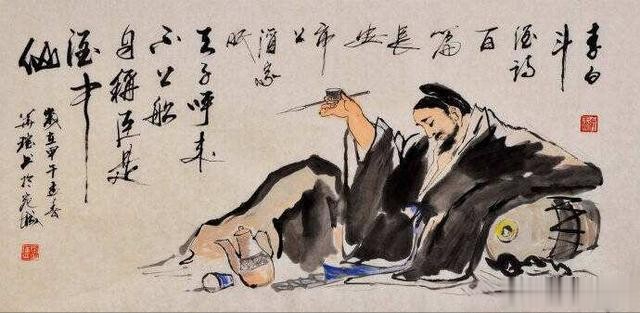 李白
斗
酒诗
百
篇
長
安
市
上
酒家
眠
天子呼来
不上船
自稱臣是
酒中
仙
歲在甲午春